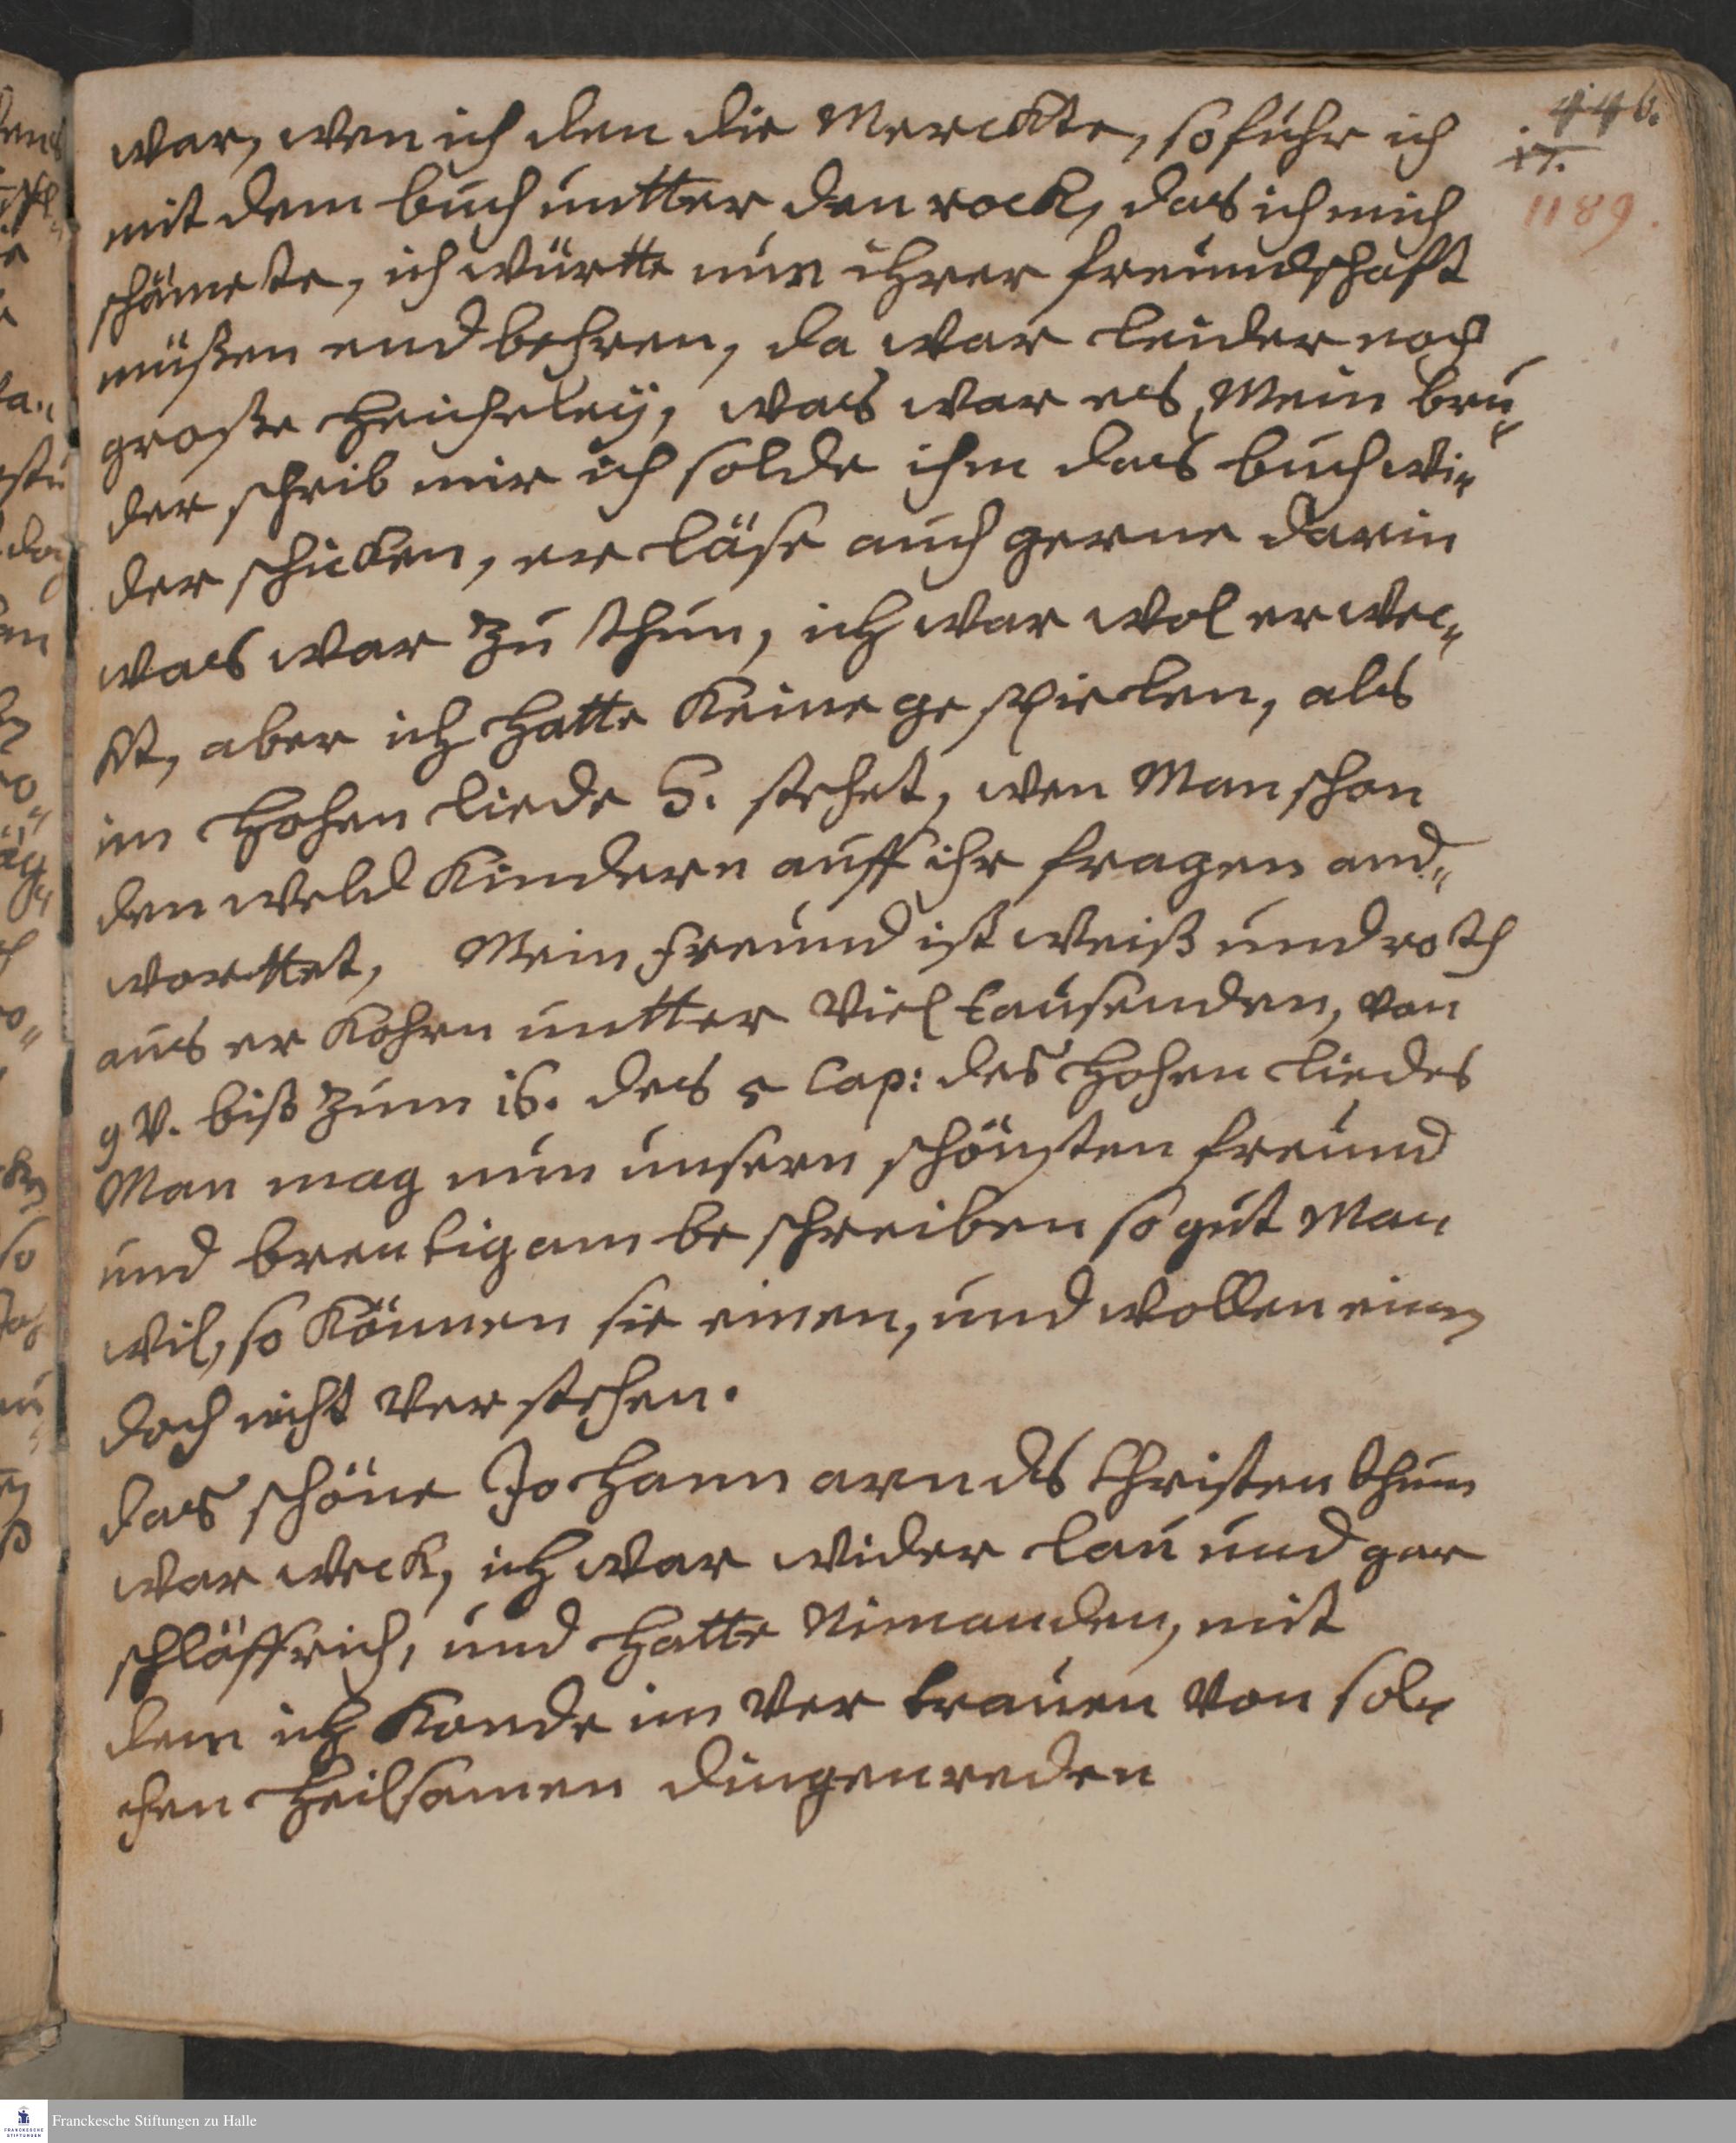 446.
17.
1189.
war, wen ich den die Merckte, so fuhr ich
mit dem buch untter den rock, das ich mich
schämete, ich württe nun ihrer freundschaft
müßen endbehren, da war leider noch
große Heicheley, was war es, Mein bru„
der schrib mir ich solde ihm das buch wi„
der schicken, er läse auch gerne darin
was war zu thun, ich war wol er wec„
kt, aber ich hatte Keine ge spielen, als
im Hohen liede 5. stehet, wen Man schon
den weld Kindern auff ihr fragen and„
worttet, Mein freund ist weiß und roth
aus er Kohren untter Viel tausenden, von
9 V. biß zum 16. des 5 Cap: des Hohen Liedes
Man mag nun unsern schönsten freund
und breutigam be schreiben so gut Man
wil, so Können sie einen, und wollen einen
doch nicht Ver stehen.
das schöne Jo Hann arnds Christen thum
war weck, ich war wider lau und gar
schläffrich, und hatte Nimanden, mit
dem ich Konde im Ver trauen Von sol„
chen Heilsamen dingen reden
Franckesche Stiftungen zu Halle